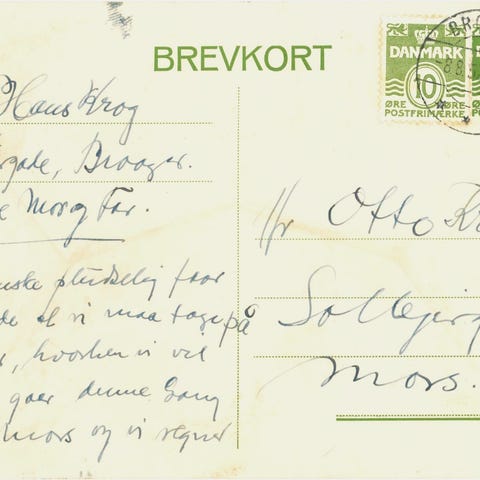 BREVKORT
DANMARK
10
ØRE ØRE
POSTFRIMÆRKE
BRO
Hans Krog
Broager.
Mor og Far.
pludselig faar
at vi maa tage på
hvorhen vi vil
gaar denne Gang
Mors og vi regner
Hr Otto Kr
Mors.